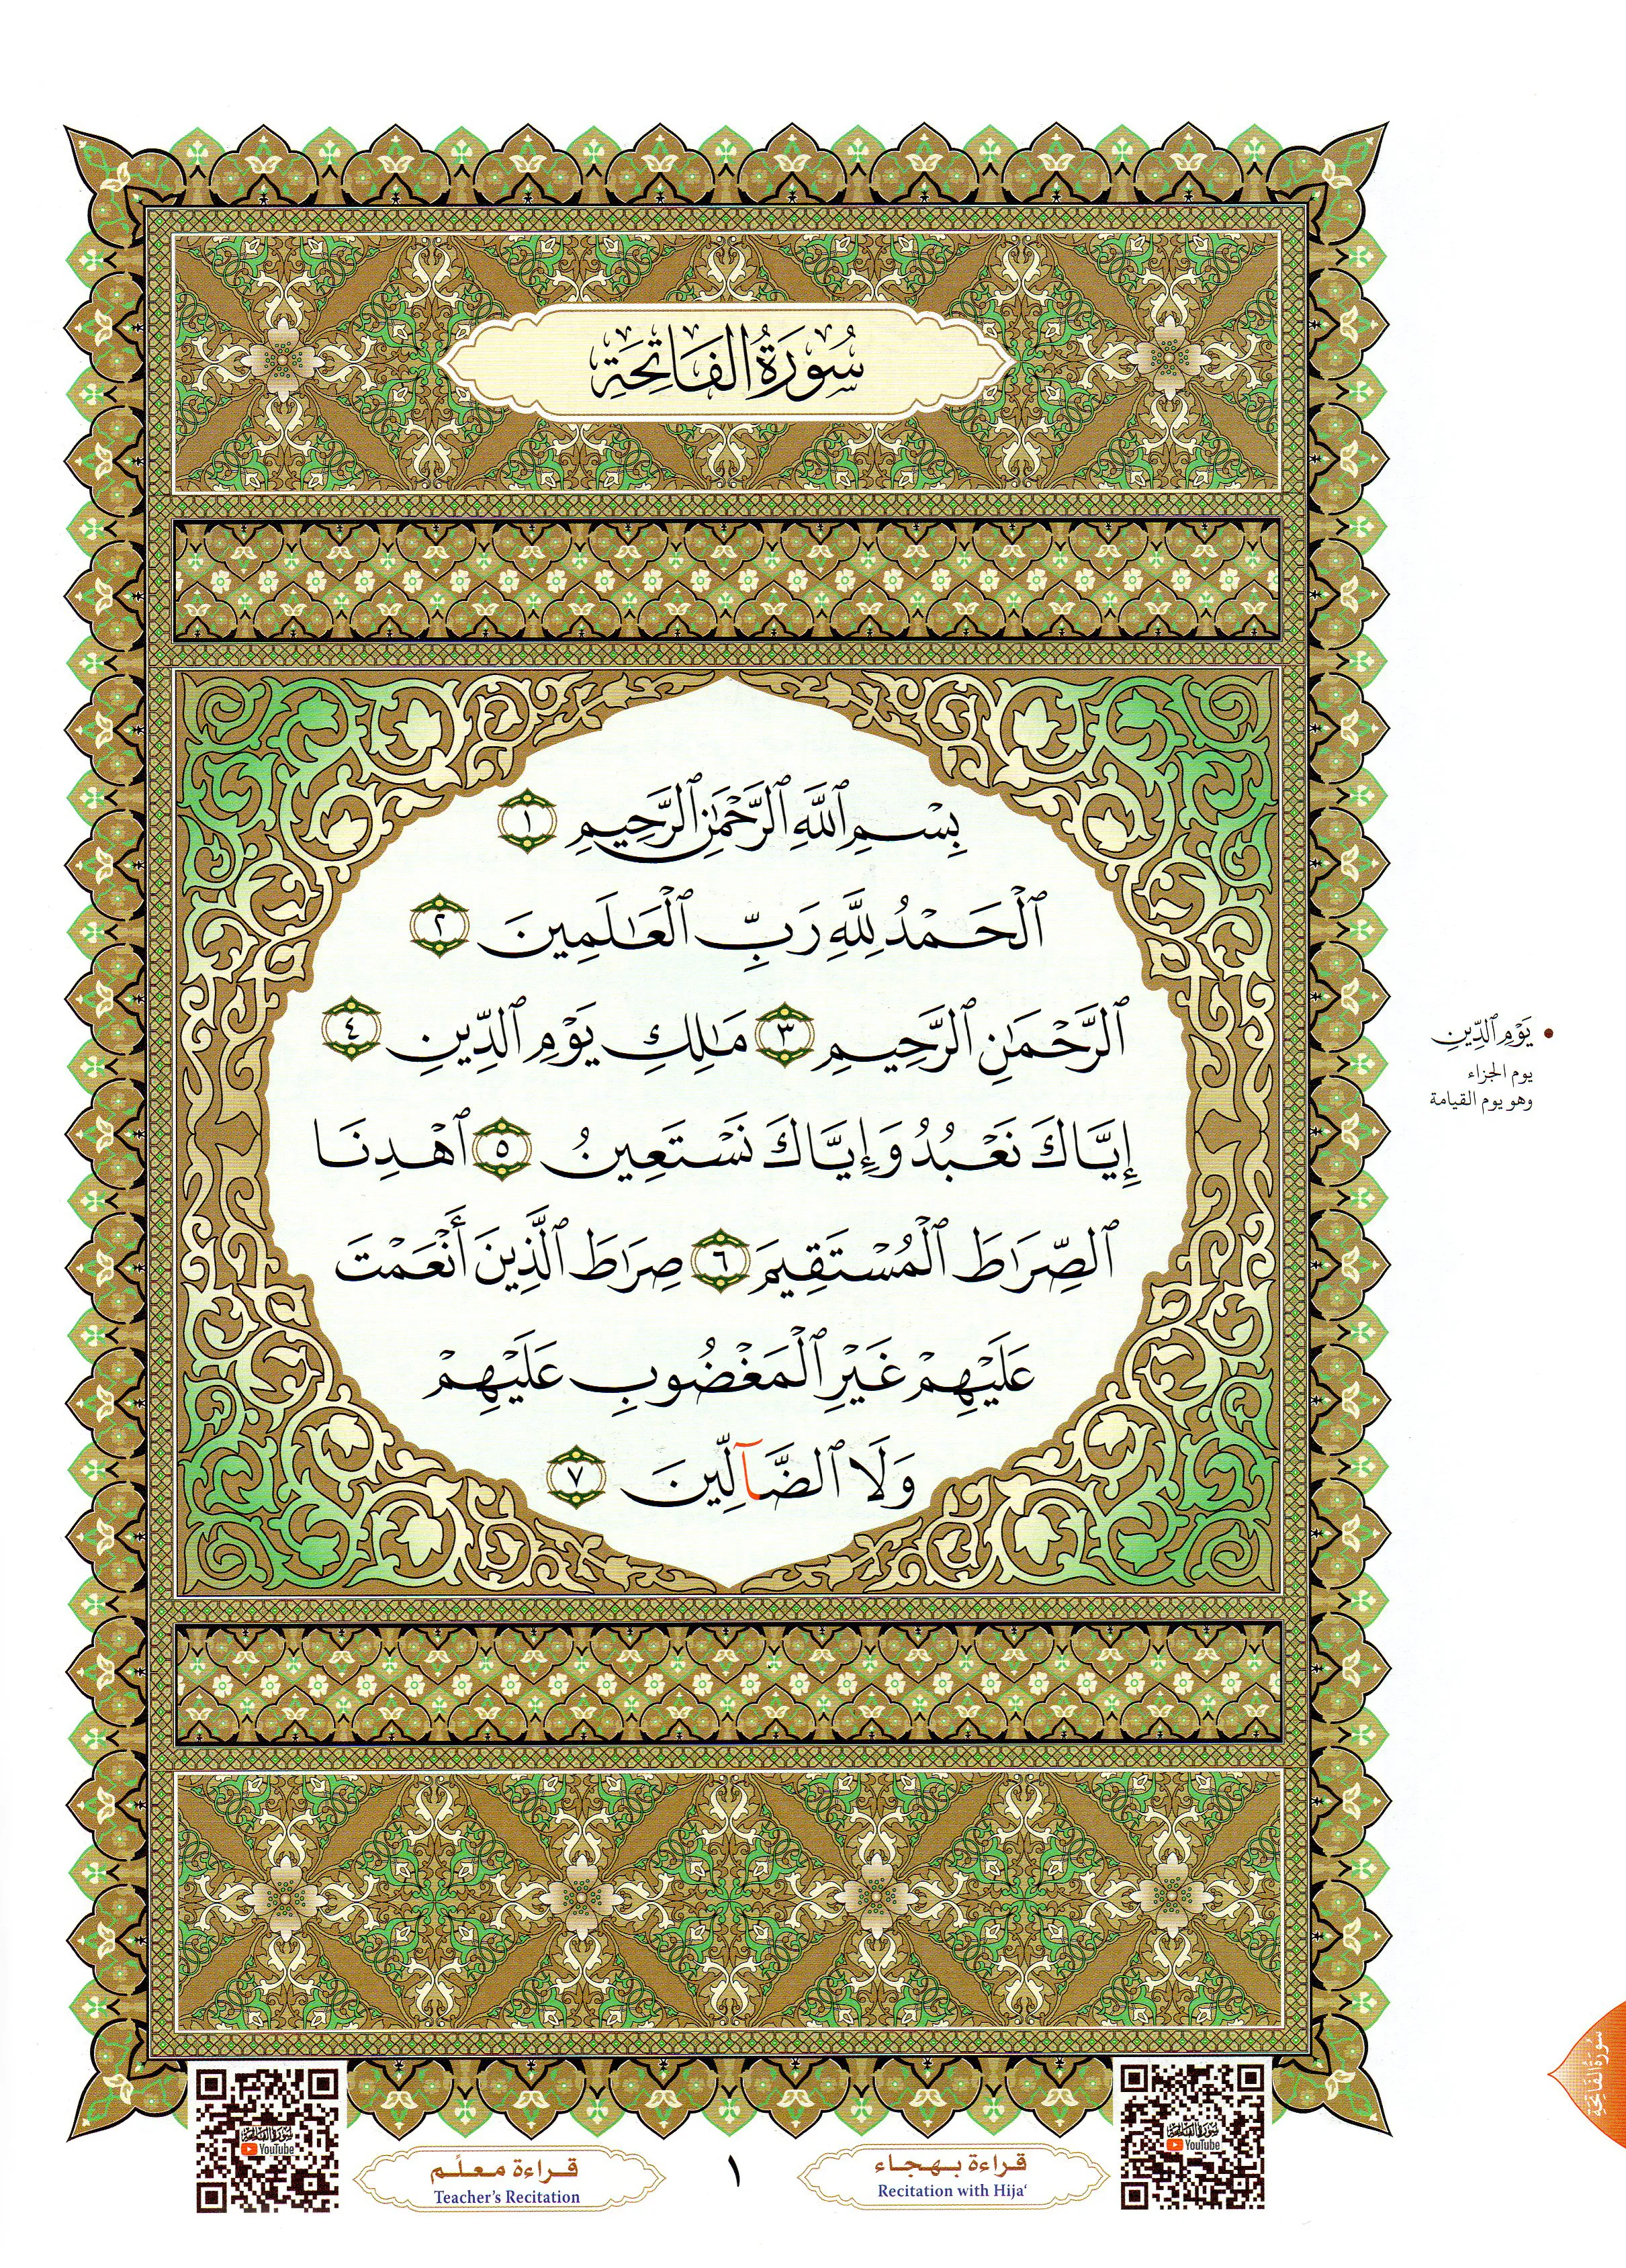 سُورَةُ الفَاتِحَةِ
بِسْمِ ٱللَّهِ ٱلرَّحْمَٰنِ ٱلرَّحِيمِ ١
ٱلْحَمْدُ لِلَّهِ رَبِّ ٱلْعَٰلَمِينَ ٢
ٱلرَّحْمَٰنِ ٱلرَّحِيمِ ٣ مَٰلِكِ يَوْمِ ٱلدِّينِ ٤
إِيَّاكَ نَعْبُدُ وَإِيَّاكَ نَسْتَعِينُ ٥ ٱهْدِنَا
ٱلصِّرَٰطَ ٱلْمُسْتَقِيمَ ٦ صِرَٰطَ ٱلَّذِينَ أَنْعَمْتَ
عَلَيْهِمْ غَيْرِ ٱلْمَغْضُوبِ عَلَيْهِمْ
وَلَا ٱلضَّآلِّينَ ٧
• يَوْمِ ٱلدِّينِ
يوم الجزاء
وهو يوم القيامة
سُورَةُ الفَاتِحَةِ
سُورَةُ الفَاتِحَةِ
YouTube
قراءة بهجاء
Recitation with Hija‘
١
قراءة معلّم
Teacher’s Recitation
سُورَةُ الفَاتِحَةِ
YouTube